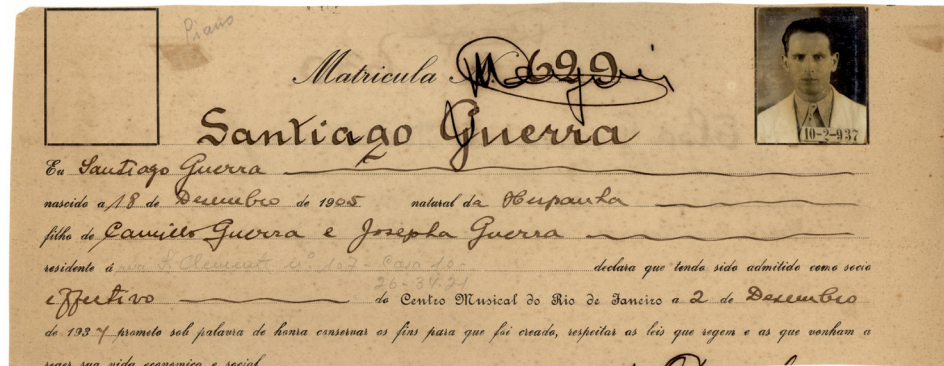 Piano
Matricula N. 699
10-2-937
Santiago Guerra
Eu Santiago Guerra
nascido a 18 de Dezembro de 1905 natural da Hespanha
filho de Camillo Guerra e Josepha Guerra
residente á rua Nº 107 - Casa 10 - declara que tendo sido admitido como socio
26-3421
effectivo do Centro Musical do Rio de Janeiro a 2 de Dezembro
de 1937 prometo sob palavra de honra conservar os fins para que foi creado, respeitar as leis que regem e as que venham a
reger sua vida economica e social